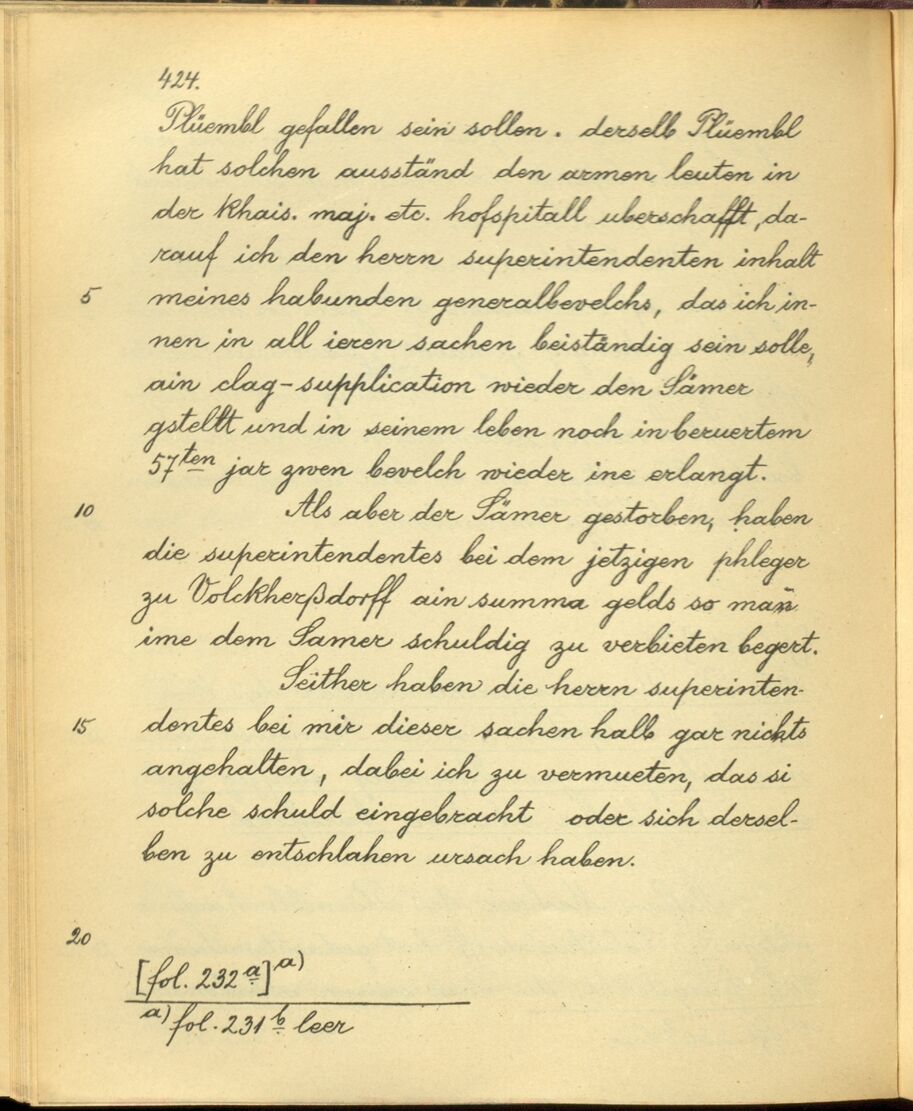 424.
Plüembl gefallen sein sollen. derselb Plüembl
hat solchen ausständ den armen leuten in
der khais. maj. etc. hofspitall uberschafft, da-
rauf ich den herrn superintendenten inhalt
5 meines habunden generalbevelchs, das ich in-
nen in all ieren sachen beiständig sein solle,
ain clag-supplication wieder den Sämer
gstellt und in seinem leben noch in beruertem
57ten jar zwen bevelch wieder ine erlangt.
10 Als aber der Sämer gestorben, haben
die superintendentes bei dem jetzigen phleger
zu Volckherßdorff ain summa gelds so man
ime dem Samer schuldig zu verbieten begert.
Seither haben die herrn superinten-
15 dentes bei mir dieser sachen halb gar nichts
angehalten, dabei ich zu vermueten, das si
solche schuld eingebracht oder sich dersel-
ben zu entschlahen ursach haben.
20
[fol. 232a] a)
a) fol. 231b leer